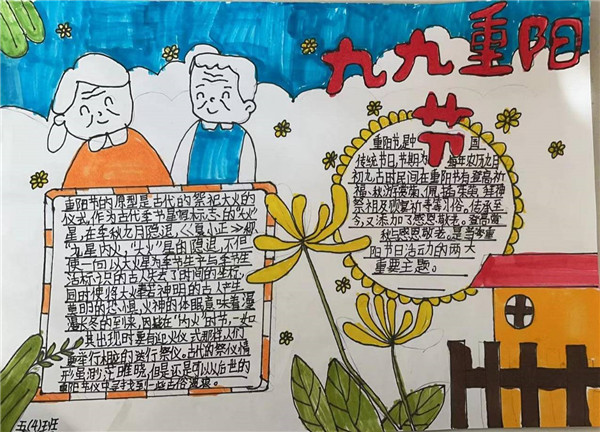 九九重阳
节
重阳节,是中 国
传统节日,节期为 每年农历九月
初九古时民间在重阳节有登高祈
福、秋游赏菊、佩插茱萸、拜神
祭祖及饮宴祈寿等习俗。传承至
今,又添加了感恩敬老。登高赏
秋与感恩敬老,是当今重
阳节日活动的两大
重要主题。
重阳节的原型是古代的祭祀大火的
仪式。作为古代季节星宿标志的“火”
星,在季秋九月隐退,《夏小正》称
“九星内火,“火”星的隐退,不但
使一向以大火星为季节生产与季节生
活标识的古人失去了时间的坐标,
同时使将大火奉若神明的古人产生
莫明的恐惧,火神的休眠意味着漫
漫长冬的到来,因此在“内火”时节,一如
其出现时要有迎火仪式那样,人们
要举行相应的送行祭仪。古代的祭仪情
形虽渺茫难晓,但是还是可以从后世的
重阳节仪中寻找到一些古俗遗痕。
五(4)班